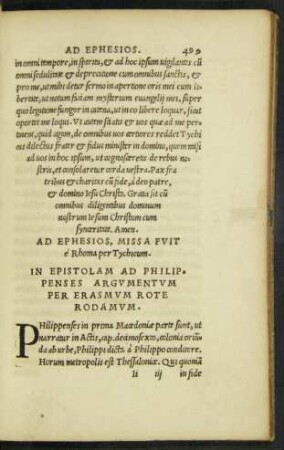 AD EPHESIOS. 499
in omni tempore, in spiritu, & ad hoc ipsum uigilantes cū
omni sedulitate & deprecatione cum omnibus sanctis, &
pro me, ut mihi detur sermo in apertione oris mei cum li
bertate, ut notum faciam mysterium euangelij mei, super
quo legatione fungor in catena, ut in eo libere loquar, sicut
oportet me loqui. Vt autem sciatis & uos quæ ad me per=
tinent, quid agam, de omnibus uos certiores reddet Tychi
cus dilectus frater & fidus minister in domino, quem misi
ad uos in hoc ipsum, ut cognosceretis de rebus no
stris, et consolaretur corda uestra. Pax fra
tribus & charitas cū fide, à deo patre,
& domino Iesu Christo. Gratia sit cū
omnibus diligentibus dominum
nostrum Iesum Christum cum
synceritate. Amen.
AD EPHESIOS, MISSA FVIT
è Rhoma per Tychicum.
IN EPISTOLAM AD PHILIP,
PENSES ARGVMENTVM
PER ERASMVM ROTE
RODAMVM.
PHilippenses in prima Macedoniæ parte sunt, ut
narratur in Actis, cap. decimosexto, colonia oriū
da ab urbe, Philippi dicta à Philippo conditore.
Horum metropolis est Thessalonica. Qui quoniā
ll iij in fide